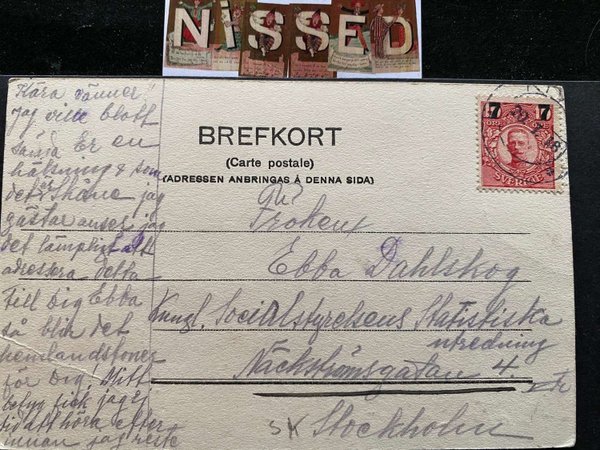 NISSED
Kära vänner!
jag ville blott
sända Er en
hälsning & som
det är Skåne jag
gästar anser jag
det lämpligt att
adressera detta
till Dig Ebba
så blir det
hemlandstoner
för Dig! Mitt
betyg fick jag ej
tid att höra efter
innan jag reste
BREFKORT
(Carte postale)
(ADRESSEN ANBRINGAS Å DENNA SIDA)
7 7
SVERIGE
Fröken
Ebba Dahlskog
Kungl. Socialstyrelsens Statistiska
utredning
Näckströmsgatan 4.
Stockholm